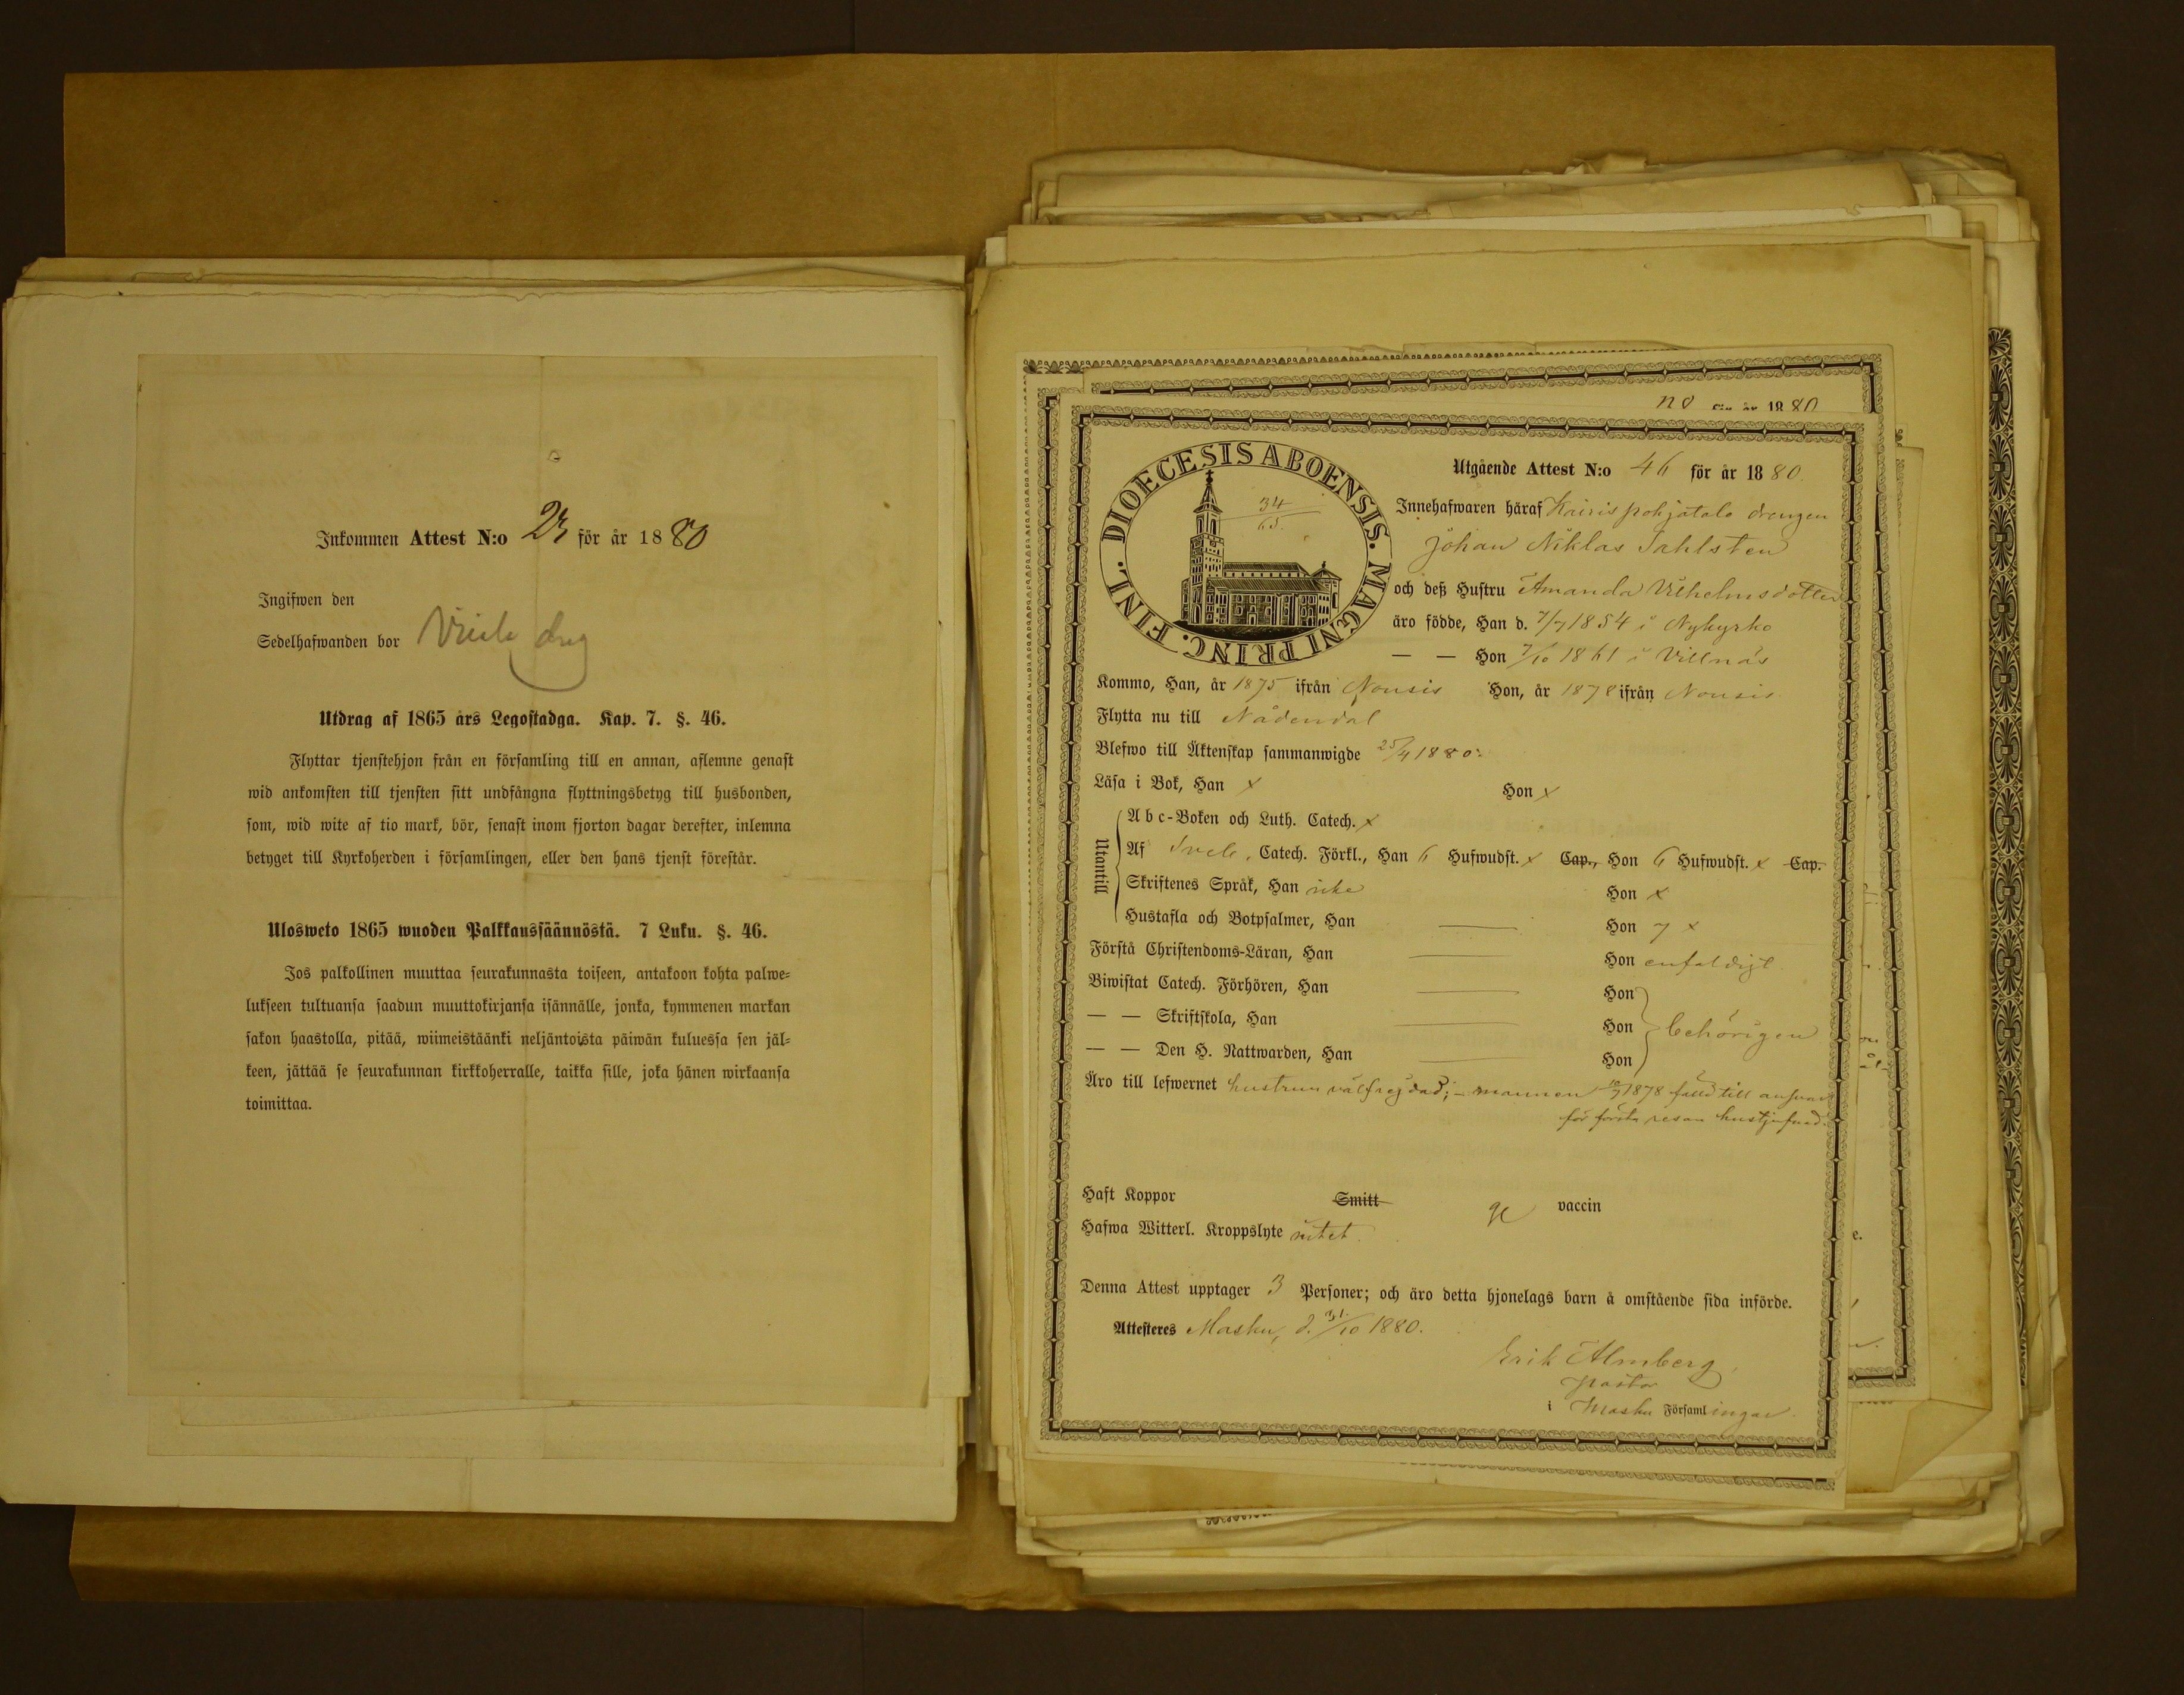 Inkommen Attest N:o 23 för år 1880
Ingifwen den
Sedelhafwanden bor
Utdrag af 1865 års Legostadga. Kap. 7. §. 46.
Flyttar tjenstehjon från en församling till en annan, aflemne genast
wid ankomsten till tjensten sitt undfångna flyttningsbetyg till husbonden,
som, wid wite af tio mark, bör, senast inom fjorton dagar derefter, inlemna
betyget till Kyrkoherden i församlingen, eller den hans tjenst förestår.
Ulosweto 1865 wuoden Palkkaussäännöstä. 7 Luku. §. 46.
Jos palkollinen muuttaa seurakunnasta toiseen, antakoon kohta palwe=
lukseen tultuansa saadun muuttokirjansa isännälle, jonka, kymmenen markan
sakon haastolla, pitää, wiimeistäänki neljäntoista päiwän kuluessa sen jäl=
keen, jättää se seurakunnan kirkkoherralle, taikka sille, joka hänen wirkaansa
toimittaa.
no för år 1880
DIOECESIS ABOENSIS. MAGNI PRINC. FINL.
34
65.
Utgående Attest N:o 46 för år 1880.
Innehafwaren häraf Kairis pohjatalo drengen
Johan Niklas Sahlsten
och deß Hustru Amanda Vilhelmsdotter
äro födde, Han d. 7/7 1854 i Nykyrko
— — Hon 7/10 1861 i Villnäs
Kommo, Han, år 1875 ifrån Nousis Hon, år 1878 ifrån Nousis
Flytta nu till Nådendal
Blefwo till Äktenskap sammanwigde 25/4 1880.
Läsa i Bok, Han x Hon x
Utantill
Abc-Boken och Luth. Catech. x
Af Svebi. Catech. Förkl., Han 6 Hufwudst. x Cap., Hon 6 Hufwudst. x Cap.
Skriftenes Språk, Han icke Hon x
Hustafla och Botpsalmer, Han — Hon 7 x
Förstå Christendoms-Läran, Han — Hon enfaldigt
Biwistat Catech. Förhören, Han — Hon
— — Skriftskola, Han — Hon behörigen
— — Den H. Nattwarden, Han — Hon
Äro till lefwernet hustrun välfrejdad; – mannen 1878 fälld till answar
för första resan
Haft Koppor Smitt vaccin
Hafwa Witterl. Kroppslyte intet.
Denna Attest upptager 3 Personer; och äro detta hjonelags barn å omstående sida införde.
Attesteres Masku, d. 31/10 1880.
Erik Almberg,
Pastor
i Masku Församlingar.